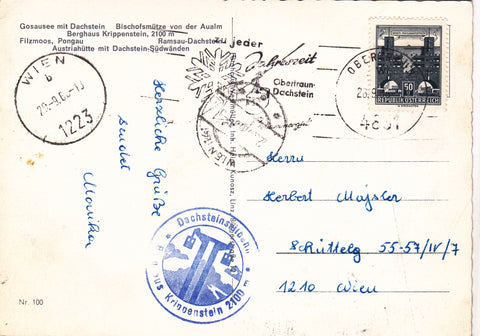 Gosausee mit Dachstein   Bischofsmütze von der Aualm
Berghaus Krippenstein, 2100 m
Filzmoos, Pongau   Ramsau-Dachstein
Austriahütte mit Dachstein-Südwänden
WIEN
b
1223
zu jeder
Jahreszeit
Obertraun-
Dachstein
50
REPUBLIK ÖSTERREICH
4831
Herzliche Grüße
sendet
Monika
Herrn
Herbert
55-57/IV/7
1210 Wien
Dachsteinseilbahn
Berghaus Krippenstein 2100 m
Nr. 100